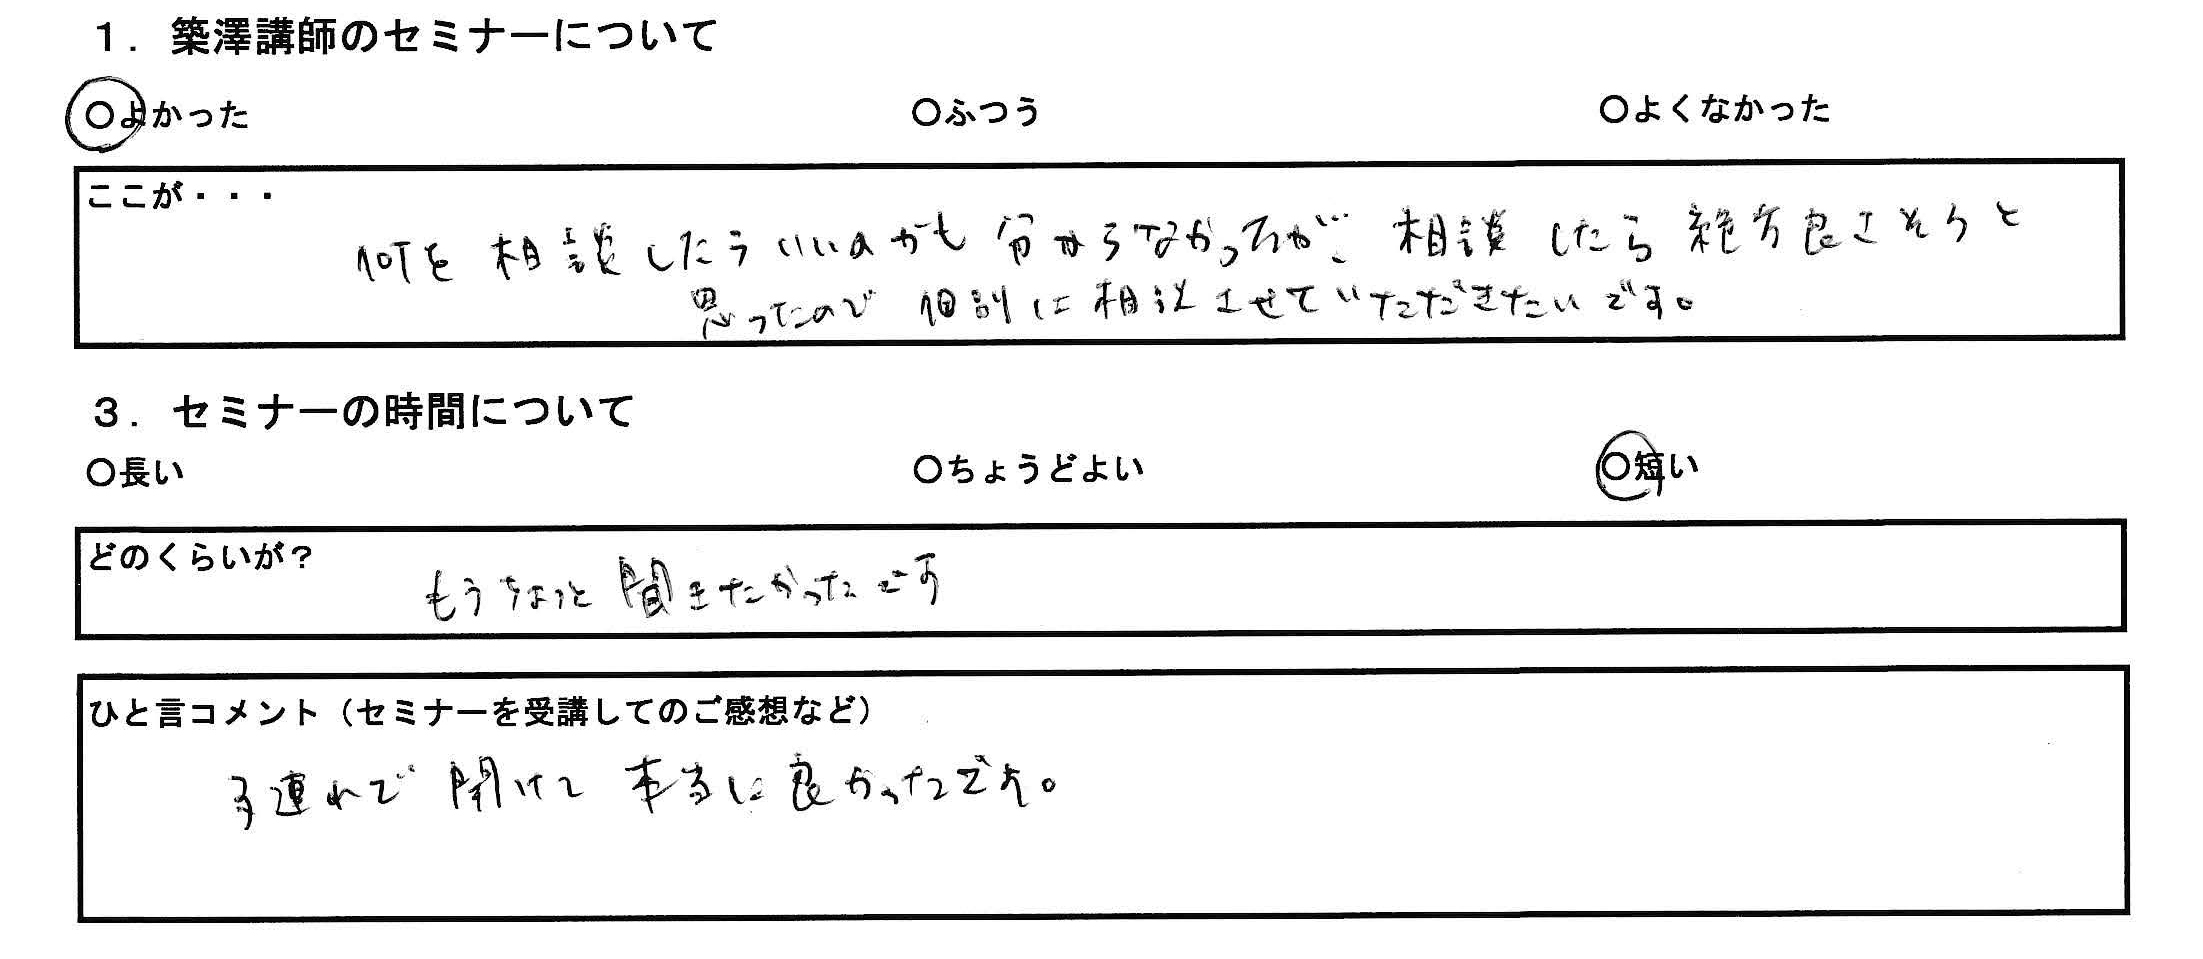 １．築澤講師のセミナーについて
○よかった ○ふつう ○よくなかった
ここが・・・
何を相談したらいいのかも分からなかったが、相談したら絶対良さそうと
思ったので個別に相談させていただきたいです。
３．セミナーの時間について
○長い ○ちょうどよい ○短い
どのくらいが？
もうちょっと聞きたかったです
ひと言コメント（セミナーを受講してのご感想など）
子連れで聞けて本当に良かったです。